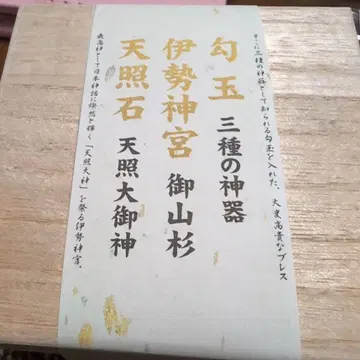 そこに三種の神器として知られる勾玉を入れた、大変高貴なブレス
勾玉 三種の神器
伊勢神宮 御山杉
天照石 天照大御神
最高神として日本神話に燦然と輝く「天照大神」を祭る伊勢神宮。